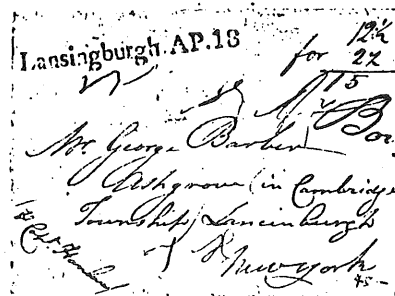 Lansingburgh AP.18
for 12½
27
15
Mr
Mr. George Barber
Ashgrove (in Cambridge
Township) Lancinburgh
New York